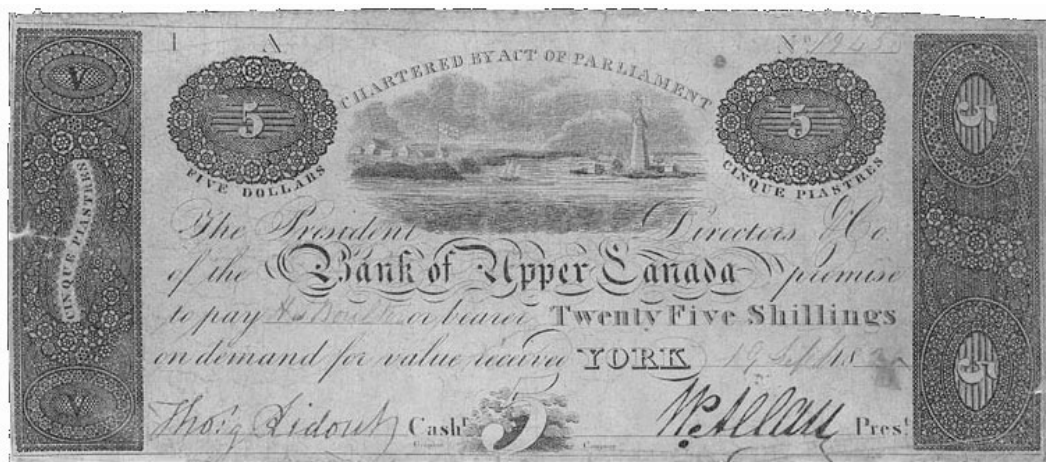 1 A No
CHARTERED BY ACT OF PARLIAMENT
V
5
5
5
FIVE DOLLARS
CINQUE PIASTRES
CINQUE PIASTRES
The President Directors & Co
of the Bank of Upper Canada promise
to pay or bearer Twenty Five Shillings
on demand for value received YORK 19 Sept 18
V
5
5
Thos. G Ridout Cashr. Wm Allan Prest.